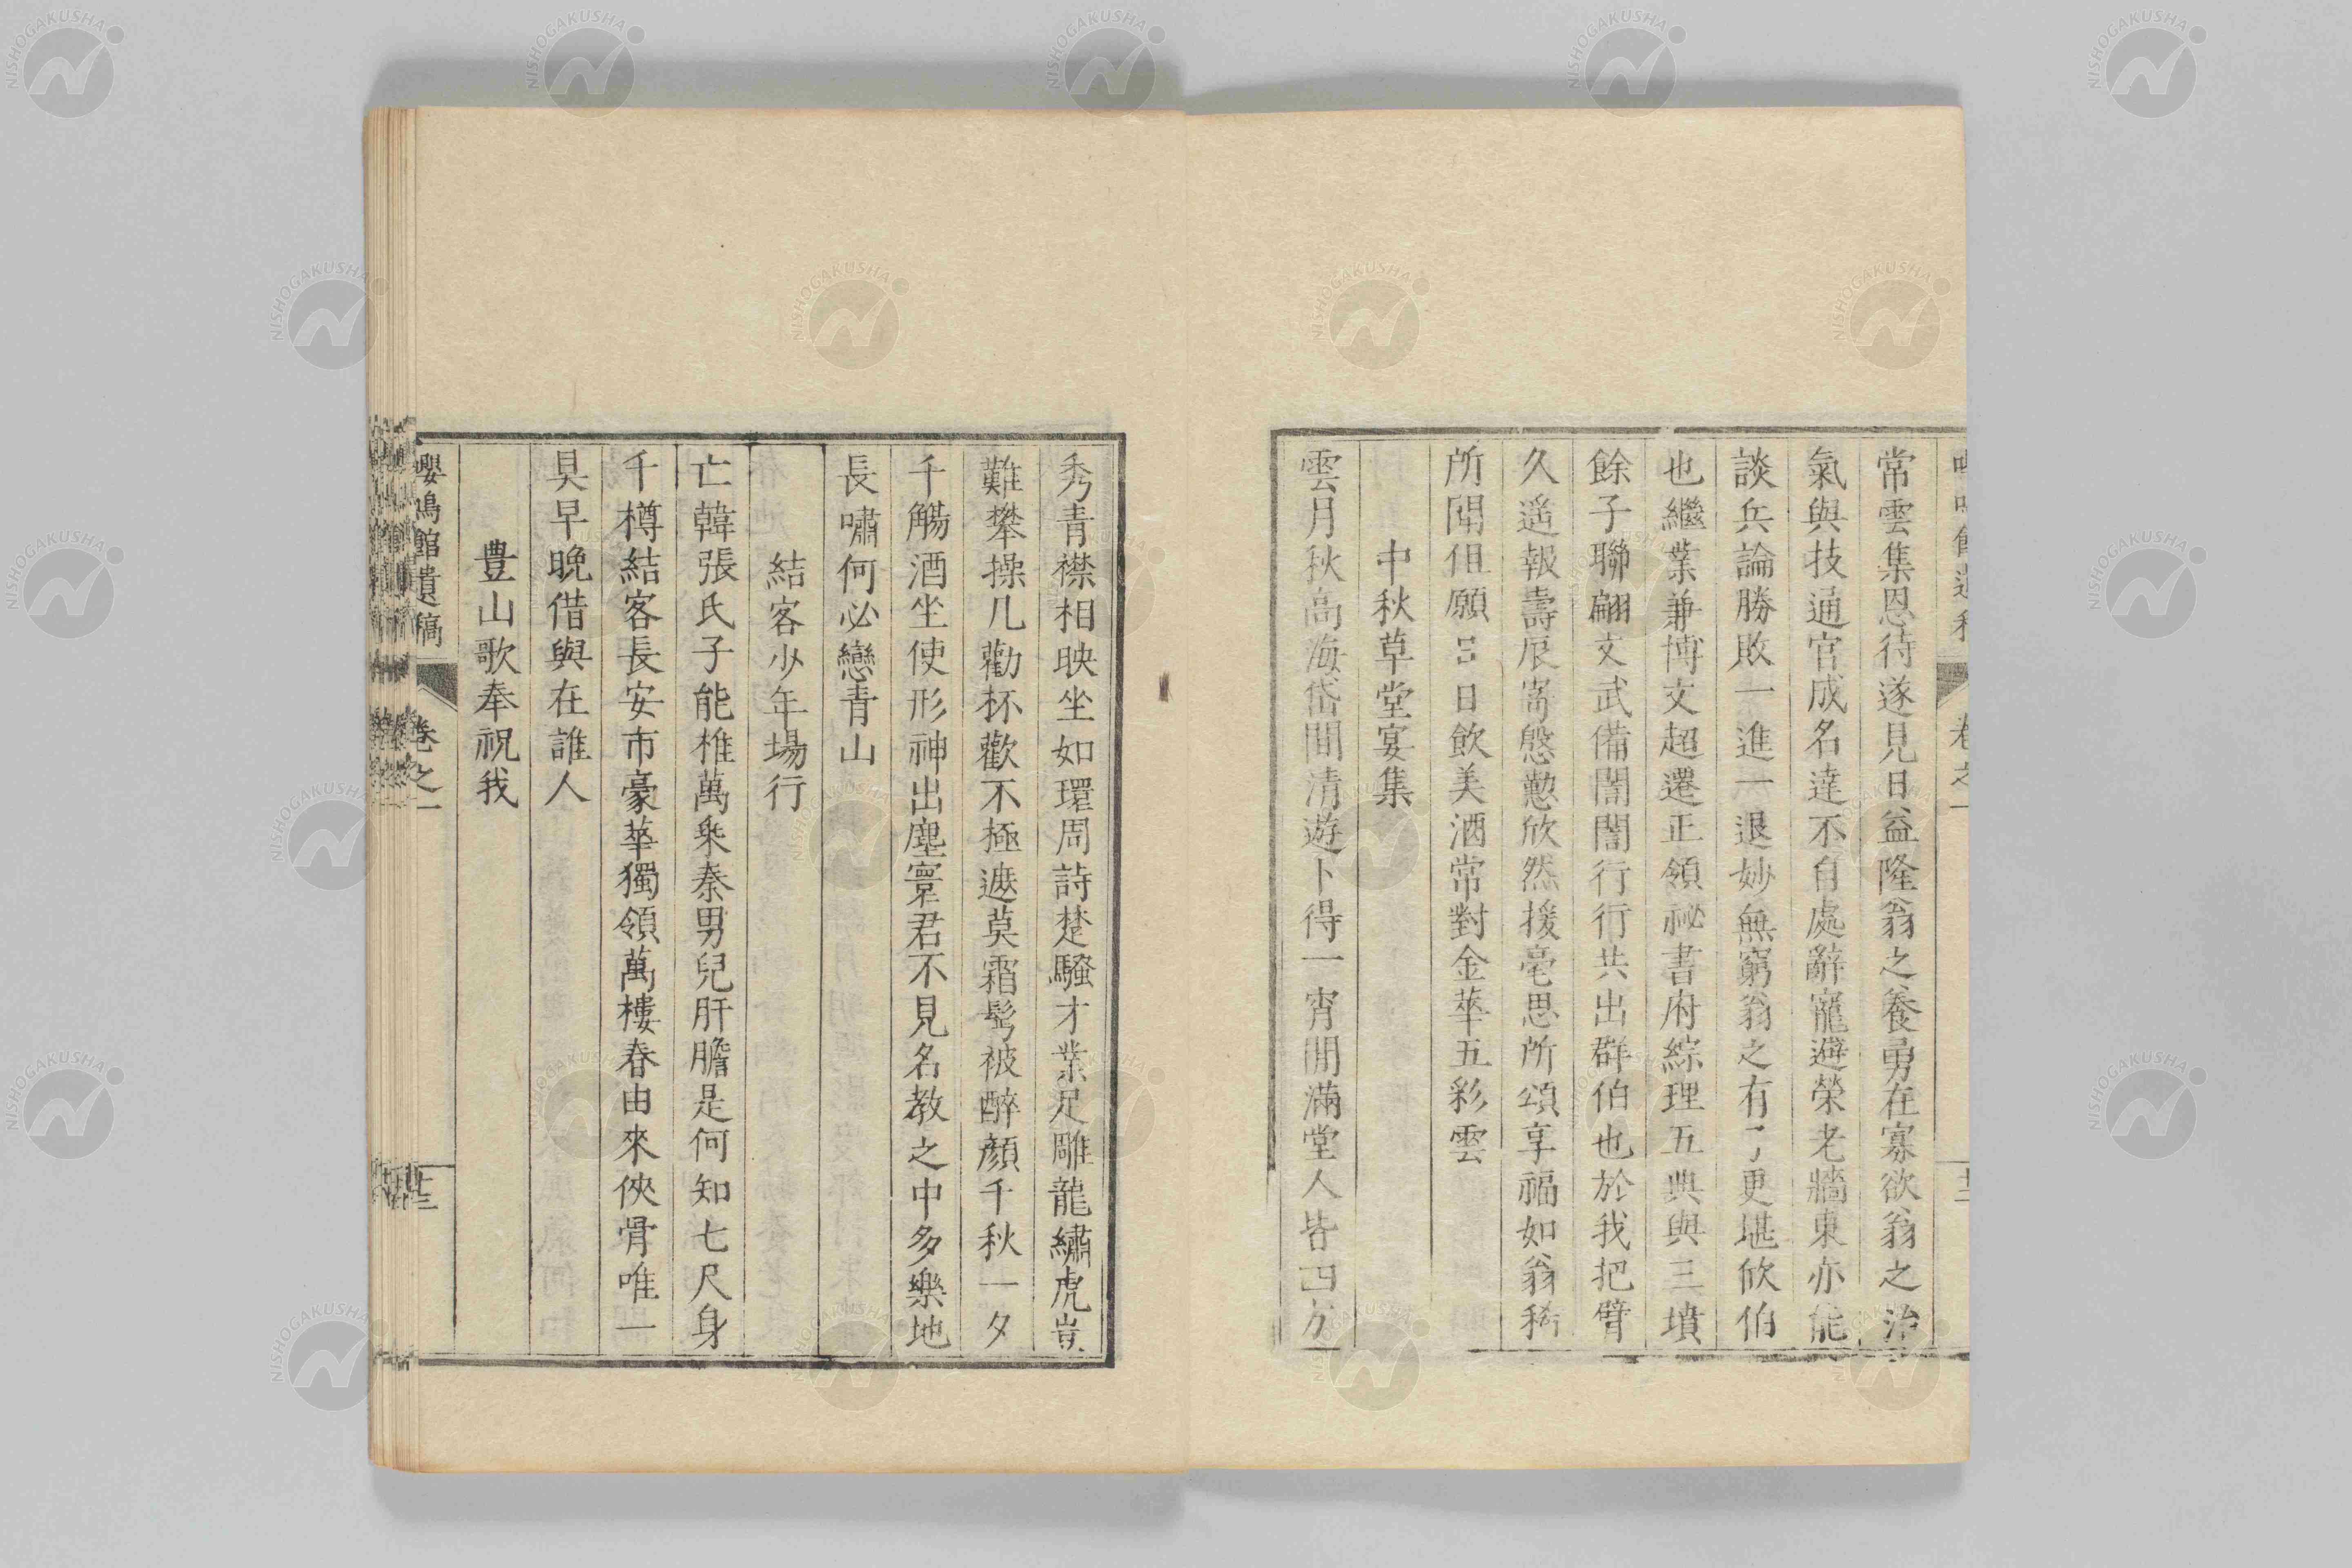 常雲集恩待遂見日益隆翁之養勇在寡欲翁之治
氣與技通官成名達不自處辭寵避榮老牆東亦能
談兵論勝敗一進一退妙無窮翁之有子更堪欣伯
也繼業兼博文超遷正領祕書府綜理五典與三墳
餘子聯翩文武備誾誾行行共出群伯也於我把臂
久遥報壽辰寄慇懃欣然援毫思所頌享福如翁稀
所聞但願日日飲美酒常對金華五彩雲
中秋草堂宴集
雲月秋高海岱間清遊卜得一宵閒滿堂人皆四方
秀青襟相映坐如環周詩楚騷才業足雕龍繡虎豈
難攀操几勸杯歡不極遮莫霜髩被醉顏千秋一夕
千觴酒坐使形神出塵寰君不見名教之中多樂地
長嘯何必戀青山
結客少年場行
亡韓張氏子能椎萬乘秦男兒肝膽是何知七尺身
千樽結客長安市豪華獨領萬樓春由來俠骨唯一
具早晚借與在誰人
豊山歌奉祝我
嚶鳴館遺稿 卷之一 十三